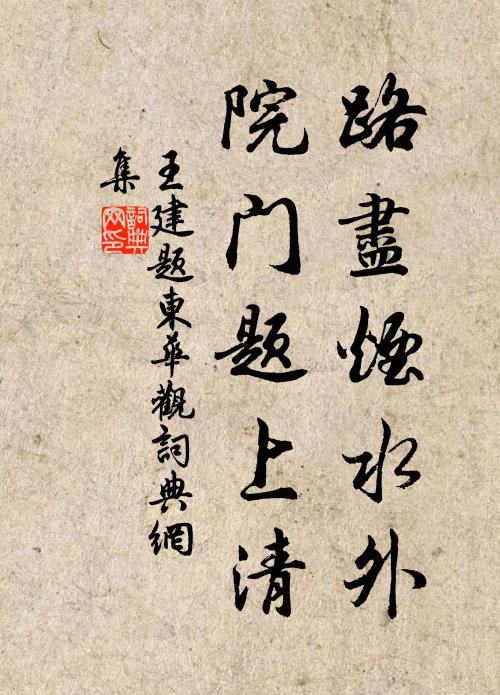 路盡煙水外
院門題上清
王建題東華觀詞典網
集
詞典網印